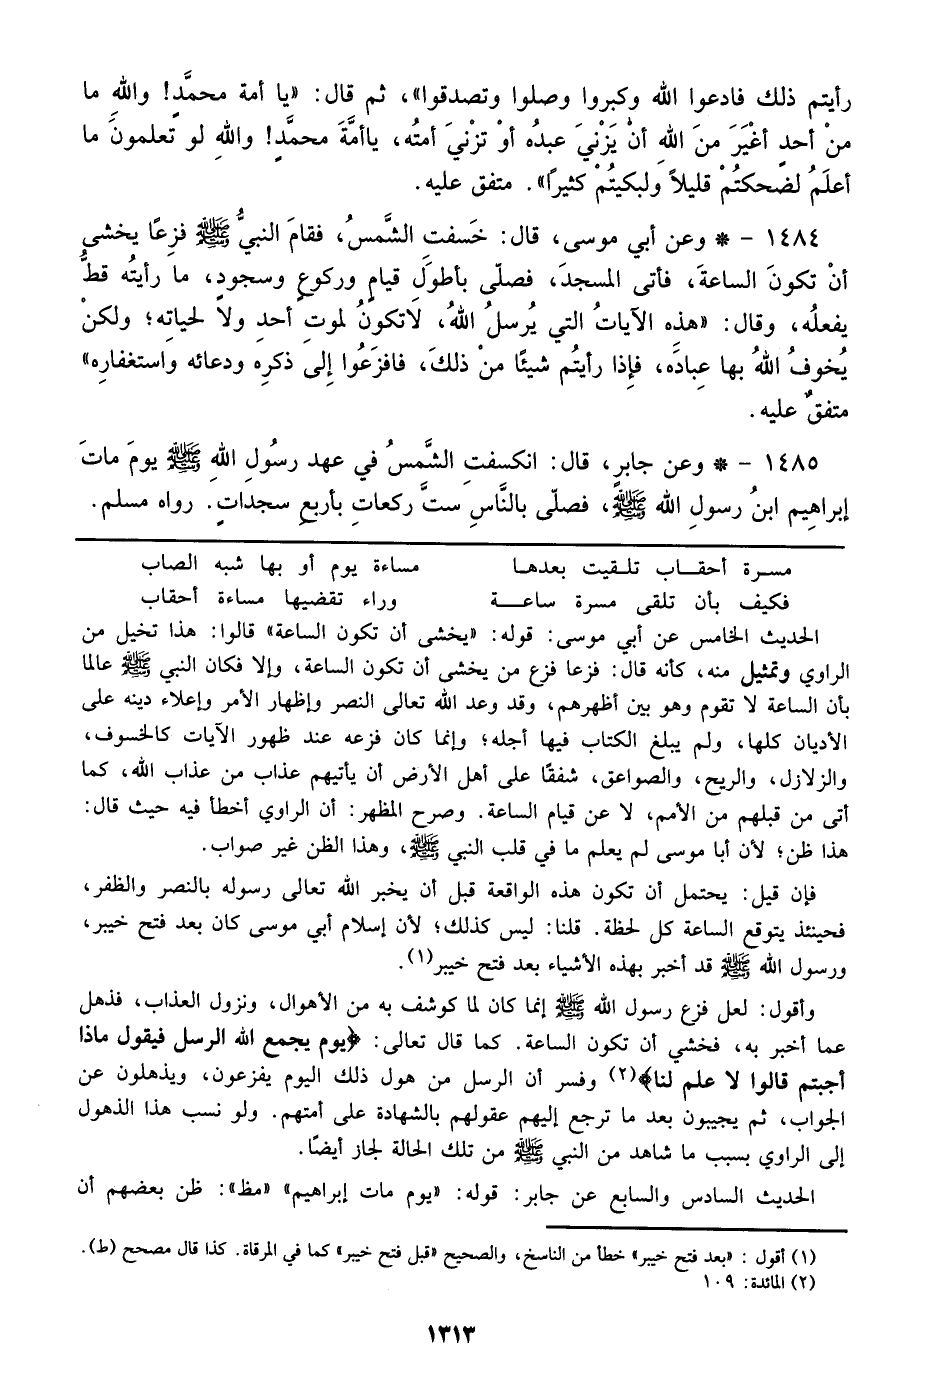 رأيتم ذلك فادعوا الله وكبروا وصلوا وتصدقوا»، ثم قال: «يا أمة محمَّدٍ! واللهِ ما
منْ أحدٍ أغْيَرَ منَ اللهِ أنْ يَزْنيَ عبدُه أوْ تزْنيَ أمتُه، ياأمَّةَ محمَّدٍ! واللهِ لو تعلمونَ ما
أعلَمُ لضحكتُمْ قليلاً ولبكيتُمْ كثيرًا». متفق عليه.
١٤٨٤ – * وعن أبي موسى، قال: خَسفتِ الشَّمسُ، فقامَ النبيُّ ﷺ فزِعًا يخشى
أنْ تكونَ الساعةَ، فأتى المسجدَ، فصلّى بأطولِ قيامٍ وركوعٍ وسجودٍ، ما رأيتُه قطُّ
يفعلُه، وقال: «هذه الآياتُ التي يُرسلُ اللهُ، لاتكونُ لموتِ أحدٍ ولا لحياتِه؛ ولكنْ
يُخوفُ اللهُ بها عبادَه، فإذا رأيتُم شيئًا منْ ذلكَ، فافزَعُوا إلى ذكرِه ودعائه واستغفارِه»
متفقٌ عليه.
١٤٨٥ – * وعن جابرٍ، قال: انكسفتِ الشَّمسُ في عهد رسُولِ اللهِ ﷺ يومَ ماتَ
إبراهِيم ابنُ رسولِ الله ﷺ، فصلّى بالنَّاسِ ستَّ ركعاتٍ بأربعِ سجداتٍ. رواه مسلم.
مسـرة أحقــاب تلـقيت بعدهـا مساءة يوم أو بها شبه الصاب
فكيف بأن تلقى مسرة ساعــة وراء تقضيها مساءة أحقاب
الحديث الخامس عن أبي موسى: قوله: «يخشى أن تكون الساعة» قالوا: هذا تخيل من
الراوي وتمثيل منه، كأنه قال: فزعا فزع من يخشى أن تكون الساعة، وإلا فكان النبي ﷺ عالما
بأن الساعة لا تقوم وهو بين أظهرهم، وقد وعد الله تعالى النصر وإظهار الأمر وإعلاء دينه على
الأديان كلها، ولم يبلغ الكتاب فيها أجله؛ وإنما كان فزعه عند ظهور الآيات كالخسوف،
والزلازل، والريح، والصواعق، شفقًا على أهل الأرض أن يأتيهم عذاب من عذاب الله، كما
أتى من قبلهم من الأمم، لا عن قيام الساعة. وصرح المظهر: أن الراوي أخطأ فيه حيث قال:
هذا ظن؛ لأن أبا موسى لم يعلم ما في قلب النبي ﷺ، وهذا الظن غير صواب.
فإن قيل: يحتمل أن تكون هذه الواقعة قبل أن يخبر الله تعالى رسوله بالنصر والظفر،
فحينئذ يتوقع الساعة كل لحظة. قلنا: ليس كذلك؛ لأن إسلام أبي موسى كان بعد فتح خيبر،
ورسول الله ﷺ قد أخبر بهذه الأشياء بعد فتح خيبر(١).
وأقول: لعل فزع رسول الله ﷺ إنما كان لما كوشف به من الأهوال، ونزول العذاب، فذهل
عما أخبر به، فخشي أن تكون الساعة. كما قال تعالى: ﴿يوم يجمع الله الرسل فيقول ماذا
أجبتم قالوا لا علم لنا﴾(٢) وفسر أن الرسل من هول ذلك اليوم يفزعون، ويذهلون عن
الجواب، ثم يجيبون بعد ما ترجع إليهم عقولهم بالشهادة على أمتهم. ولو نسب هذا الذهول
إلى الراوي بسبب ما شاهد من النبي ﷺ من تلك الحالة لجاز أيضًا.
الحديث السادس والسابع عن جابر: قوله: «يوم مات إبراهيم» «مظ»: ظن بعضهم أن
(١) أقول : «بعد فتح خيبر» خطأ من الناسخ، والصحيح «قبل فتح خيبر» كما في المرقاة. كذا قال مصحح (ط).
(٢) المائدة: ١٠٩
١٣١٣